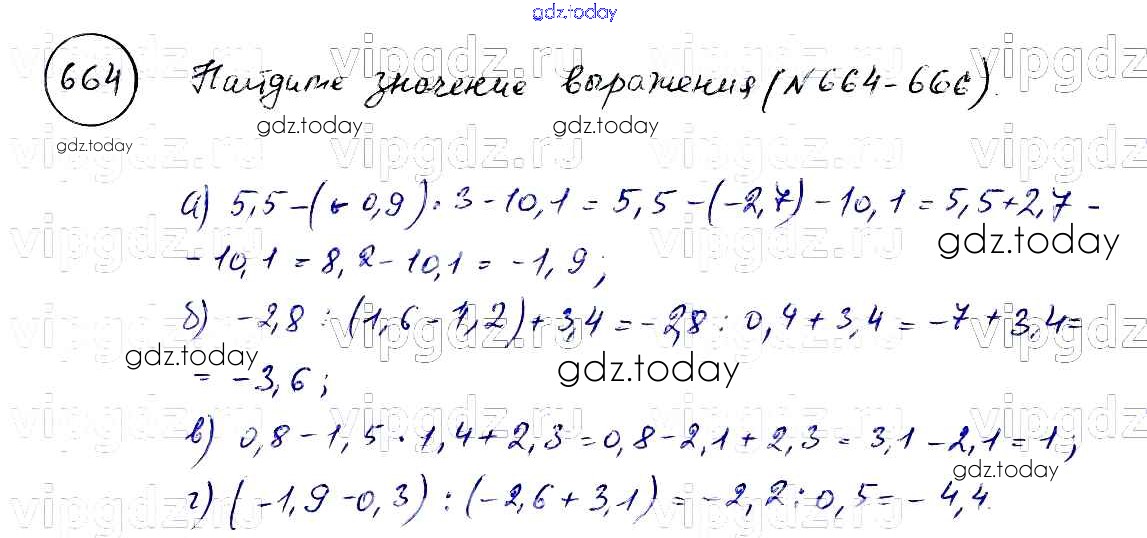 gdz.today
664 Найдите значение выражения (№664-666).
gdz.today gdz.today gdz.today
gdz.today
vipgdz.ru vipgdz.ru vipgdz.ru vipgdz.ru
а) 5,5-(-0,9)·3-10,1=5,5-(-2,7)-10,1=5,5+2,7-
gdz.today
-10,1=8,2-10,1=-1,9;
б) -2,8:(1,6-1,2)+3,4=-2,8:0,4+3,4=-7+3,4=
gdz.today gdz.today
=-3,6;
в) 0,8-1,5·1,4+2,3=0,8-2,1+2,3=3,1-2,1=1;
gdz.today
г) (-1,9-0,3):(-2,6+3,1)=-2,2:0,5=-4,4.